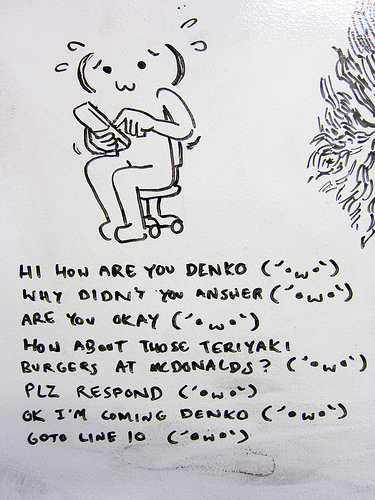 HI HOW ARE YOU DENKO (´•ω•`)
WHY DIDN'T YOU ANSWER (´•ω•`)
ARE YOU OKAY (´•ω•`)
HOW ABOUT THOSE TERIYAKI
BURGERS AT MCDONALDS? (´•ω•`)
PLZ RESPOND (´•ω•`)
OK I'M COMING DENKO (´•ω•`)
GOTO LINE 10 (´•ω•`)